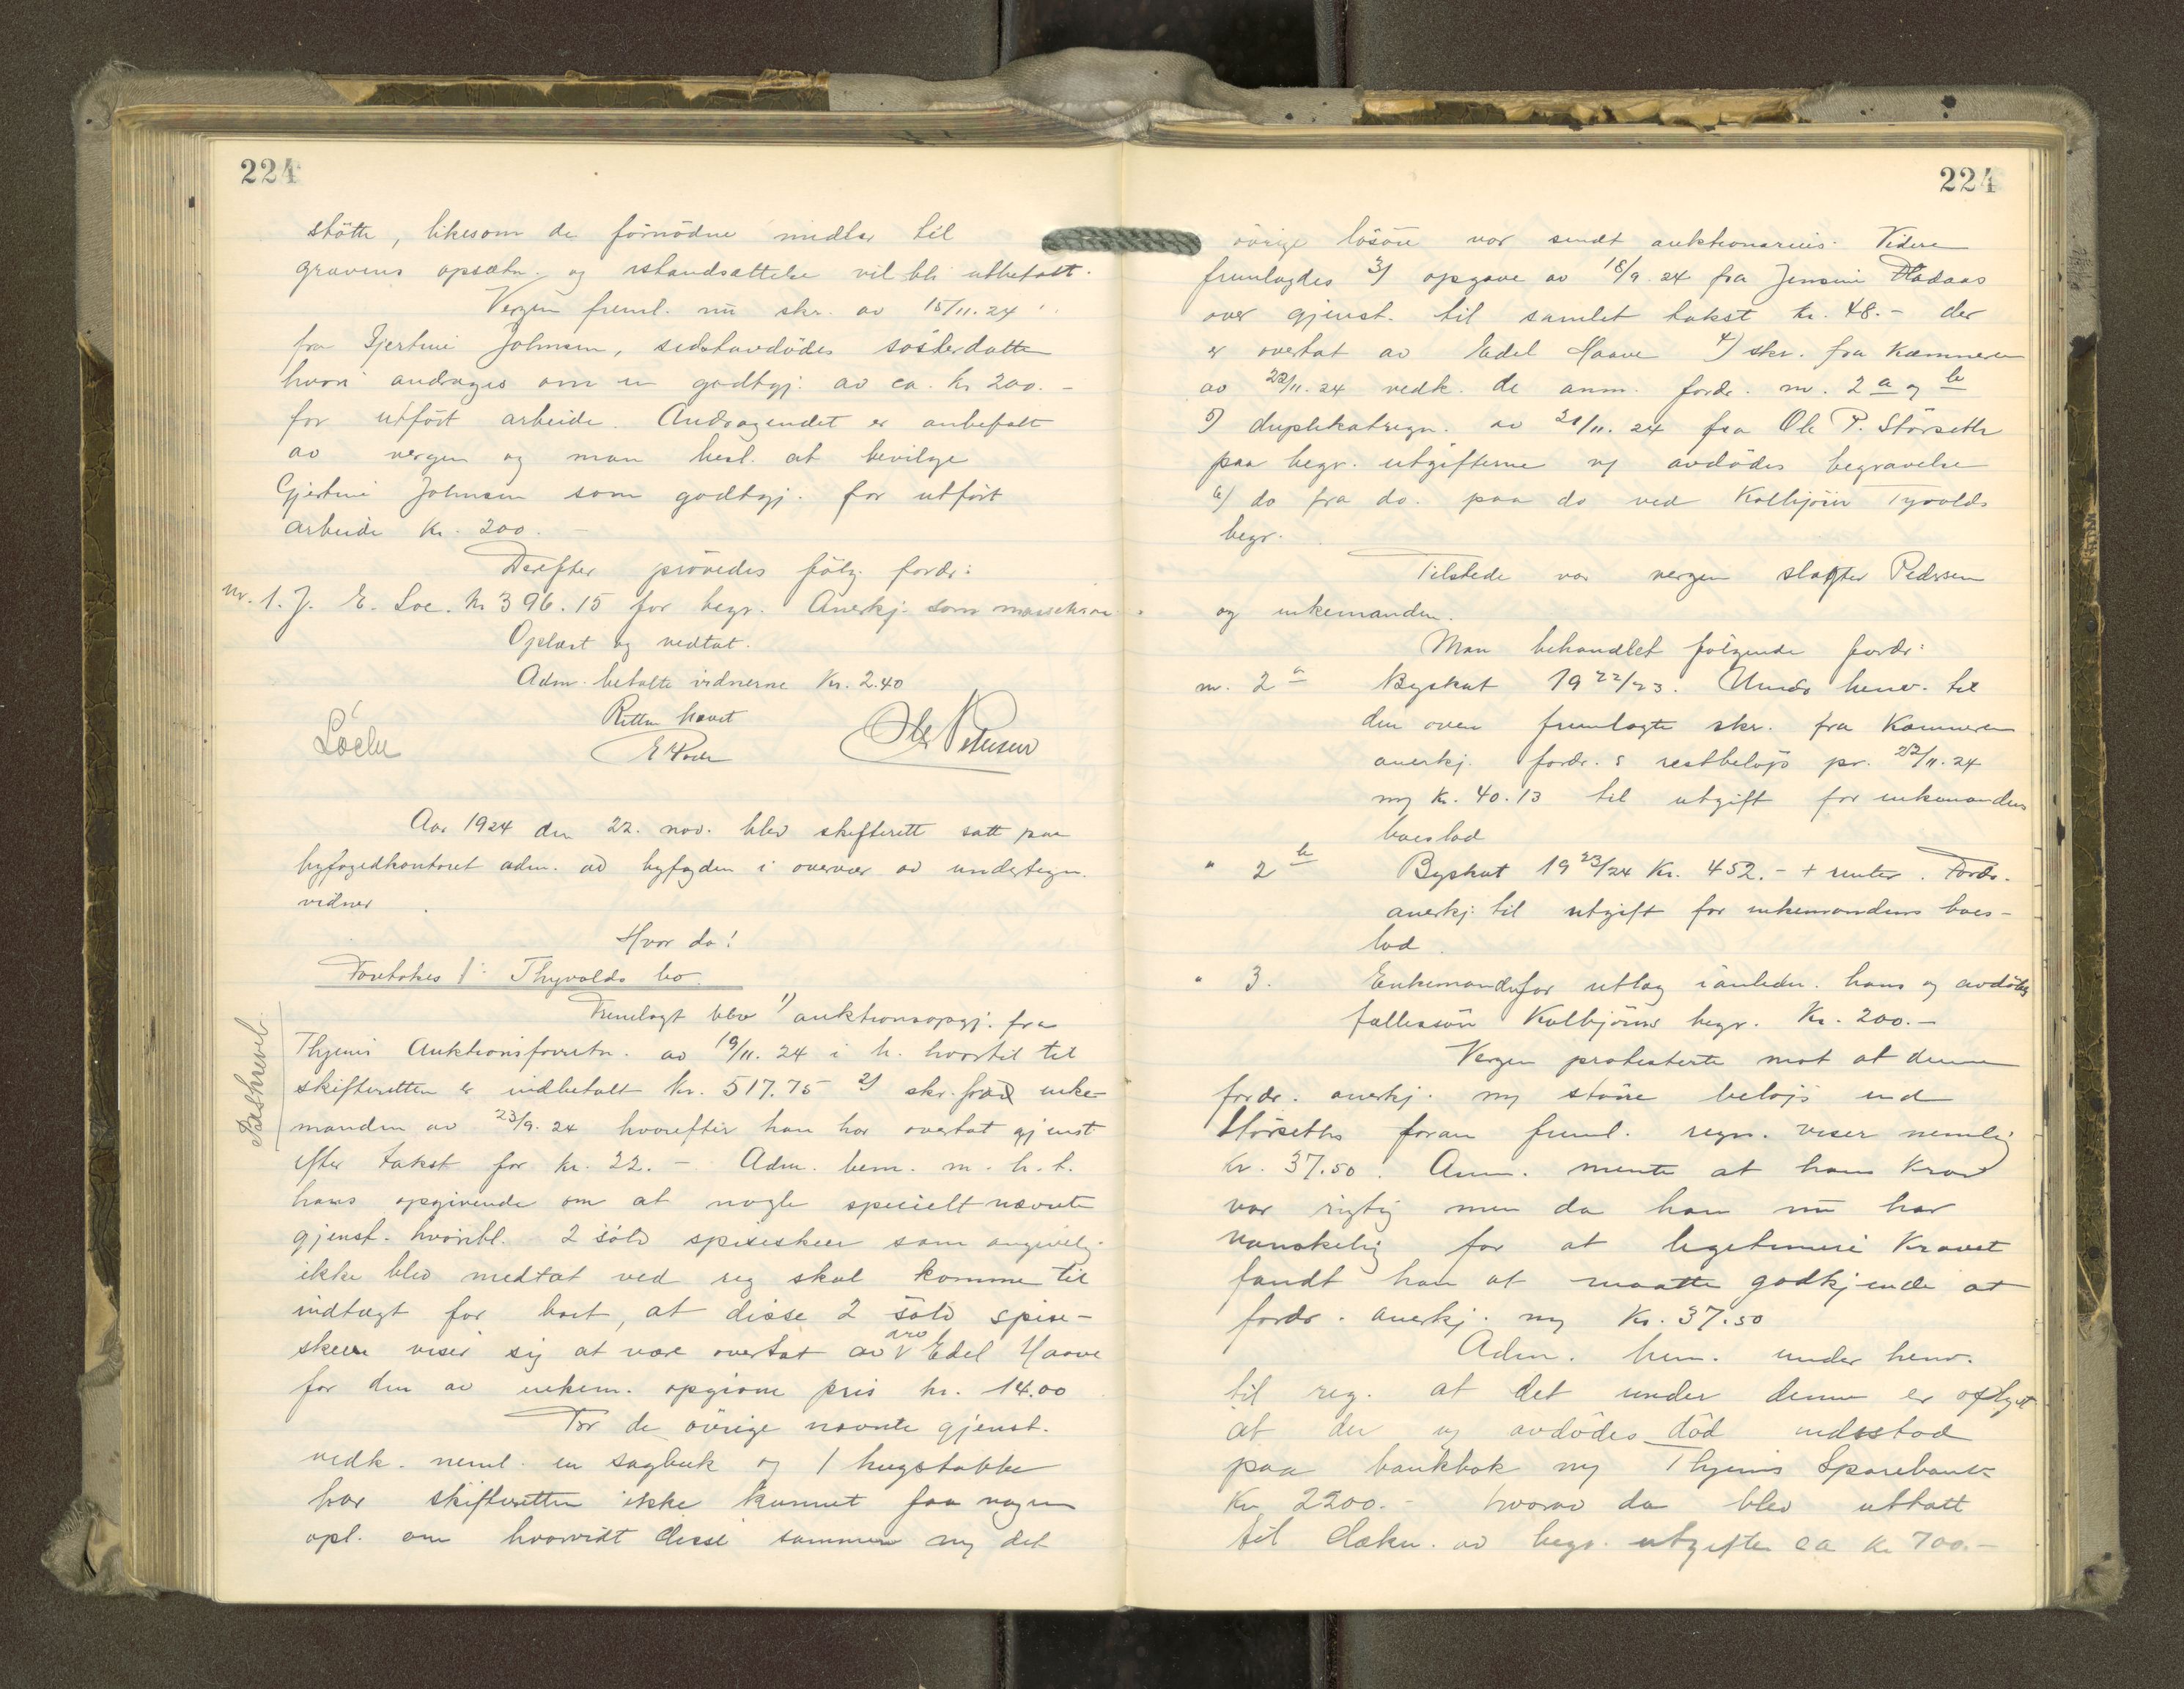 224
støtte, likesom de fornødne midler til
gravens opsætn. og istandsættelse vil bli utbetalt.
Vergen freml. nu skr. av 15/11.24
fra Gjertine Johnsen, sidstavdødes søsterdatter
hvori andrages om en godtgj. av ca. kr. 200.-
for utført arbeide. Andragendet er anbefalt
av vergen og man besl. at bevilge
Gjertine Johnsen som godtgj. for utført
arbeide kr. 200.-
Derefter prøvedes følg. fordr:
nr. 1. J. E. Loe. kr 396.15 for begr. Anerkj. som massekrav.
Oplæst og vedtat.
Adm. betalte vidnerne kr. 2.40
Retten hævet
Ole Pedersen
Aar 1924 den 22. nov. blev skifterett satt paa
byfogedkontoret adm. av byfogden i overvær av undertegn.
vidner.
Hvor da!
Foretokes 1: Thyvolds bo.
Fremlagt blev 1) auktionsopgj. fra
Thjems Auktionsforretn. av 19/11.24 i h. hvortil til
skifteretten er indbetalt kr. 517.75 2) skr. fra enke-
manden av 23/9.24 hvorefter han har overtat gjenst
efter takst for kr. 22.- Adm. bem. m.h.t.
hans opgivende om at nogle specielt nævnte
gjenst. hvoribl. 2 sølv spiseskeer som angivelig
ikke blev medtat ved reg skal komme til
indtægt for boet, at disse 2 sølv spise-
skeer viser sig at være overtat av Edel Haave
for den av enkem. opgivne pris kr. 14.00
For de øvrige nævnte gjenst.
vedk. neml. en sagbuk og 1 hugstabbe
har skifteretten ikke kunnet faa nogen
opl. om hvorvidt disse sammen m/ det
224
øvrige løsøre var sendt auktionarius. Videre
fremlagdes 3) opgave av 18/9.24 fra Jensine
over gjenst. til samlet takst kr. 48.- der
er overtat av Edel Haave 4) skr. fra Kæmneren
av 22/11.24 vedk. de anm. fordr. nr. 2 a og b
5) duplikatregn. av 21/11.24 fra Ole P. Størseth
paa begr. utgifterne v/ avdødes begravelse
6) do fra do. paa do ved Kolbjørn Tyvolds
begr.
Tilstede var vergen slagter Pedersen
og enkemanden.
Man behandlet følgende fordr:
nr. 2 a Byskat 1922/23. Under henv. til
den oven fremlagte skr. fra Kæmneren
anerkj. fordr. s restbeløp pr. 22/11.24
m/ kr. 40.13 til utgift for enkemandens
boeslod
" 2 b Byskat 1923/24 Kr. 452.- + renter. Fordr.
anerkj. til utgift for enkemandens boes-
lod.
" 3. Enkemanden for utlæg i anledn. hans og avdødes
fællessøn Kolbjørns begr. Kr. 200.-
Vergen protesterte mot at denne
fordr. anerkj. m/ større beløp end
Størseths foran freml. regn. viser nemlig
kr. 37.50. Anm. mente at hans krav
var rigtig men da han nu har
vanskelig for at legitimere kravet
fandt han at maatte godkjende at
fordr. anerkj. m/ Kr. 37.50
Adm. bem. under henv.
til reg. at det under denne er oplyst
at der v/ avdødes død indestod
paa bankbok m/ Thjems Sparebank
Kr 2200.- hvorav da blev uttatt
til dækn. av begr. utgifter ca kr 700.-